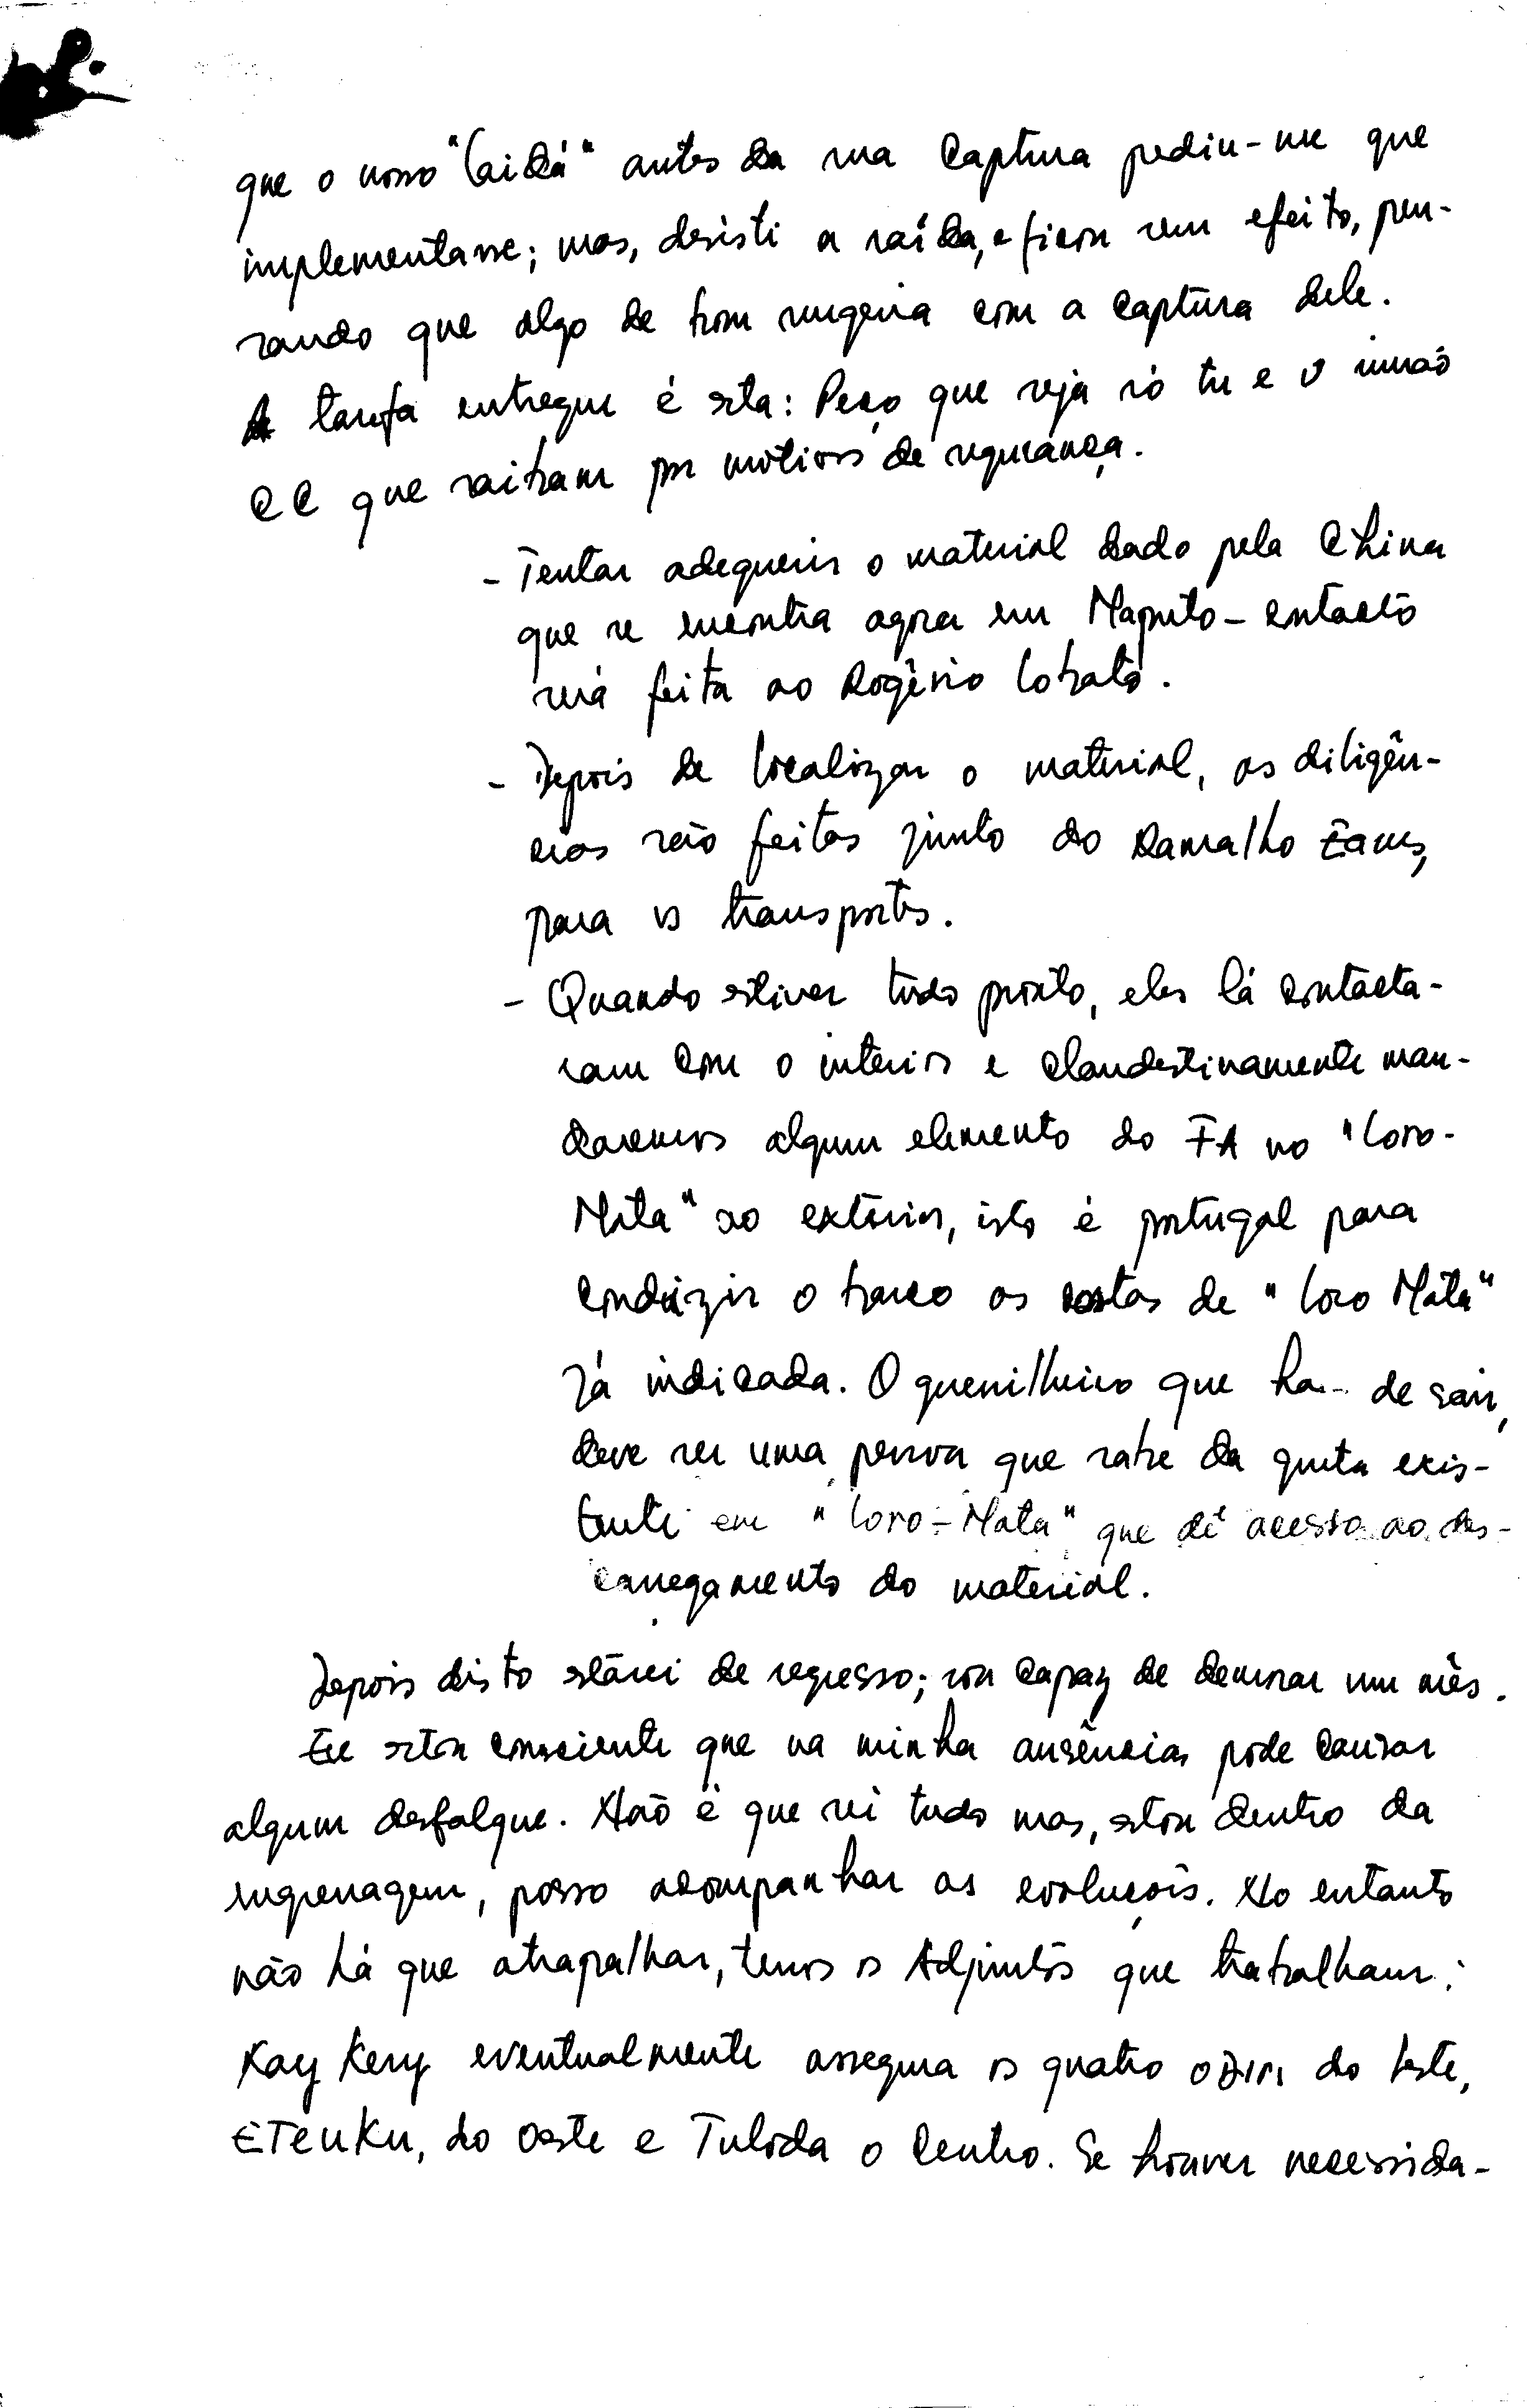 que o nosso "Caidá" antes da sua captura pediu-me que
implementasse; mas, desisti a saída, e ficou sem efeito, pen-
sando que algo de bom surgeria com a captura dele.
A tarefa entregue é esta: Peço que seja só tu e o irmão
CC que saibam por motivos de segurança.
- Tentar adequerir o material dado pela China
que se encontra agora em Maputo - contacto
será feita ao Rogério Lobato.
- Depois de localizar o material, as diligên-
cias são feitas junto do Ramalho Eanes,
para os transportes.
- Quando estiver tudo pronto, eles lá contacta-
ram com o interior e clandestinamente man-
daremos algum elemento do FA no "Loro-
Mata" ao exterior, isto é portugal para
conduzir o barco as costas de "Loro Mata"
já indicada. O guerrilheiro que ha-- de sair,
deve ser uma pessoa que sabe da gruta exis-
tente em "Loro-Mata" que dê acesso ao des-
carregamento do material.
Depois disto estarei de regresso; sou capaz de demorar um mês.
Eu estou consciente que na minha ausências pode causar
algum desfalque. Não é que sei tudo mas, estou dentro da
engrenagem, posso acompanhar as evoluçõis. No entanto
não há que atrapalhar, temos os Adjuntos que trabalham:
Kay Kery eventualmente assegura os quatro ODIR do Leste,
ETeuKu, do Oeste e Tuloda o Centro. Se houver necessida-